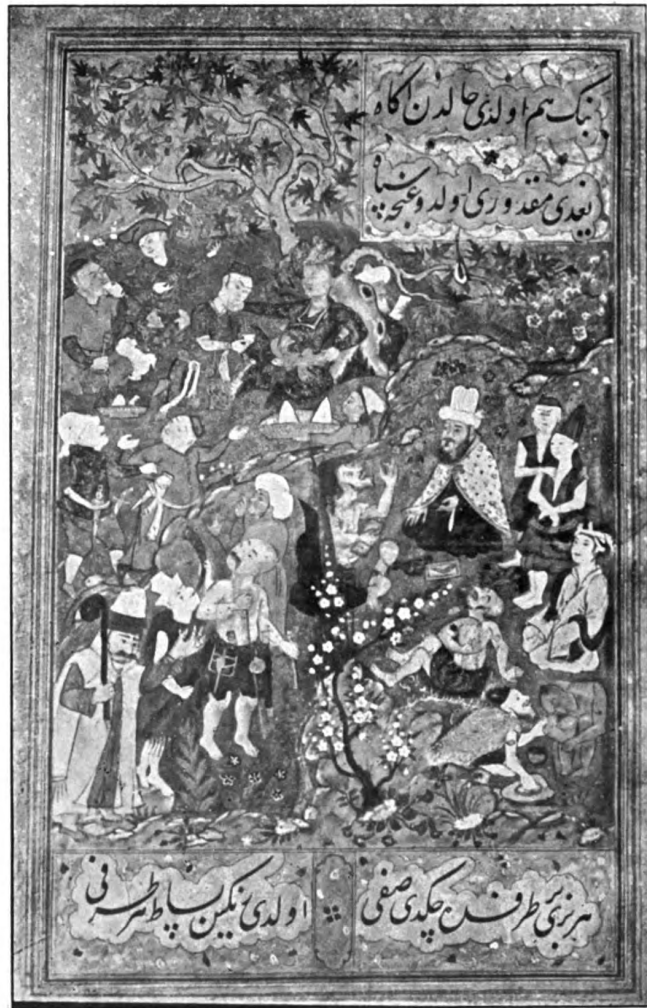 بنک هم اولدی حالدن اکاه
یغدی مقدوری اولدوغنجه سپاه
هر بری بر طرفدن چکدی صفی
اولدی رنکین بساط هر طرفی